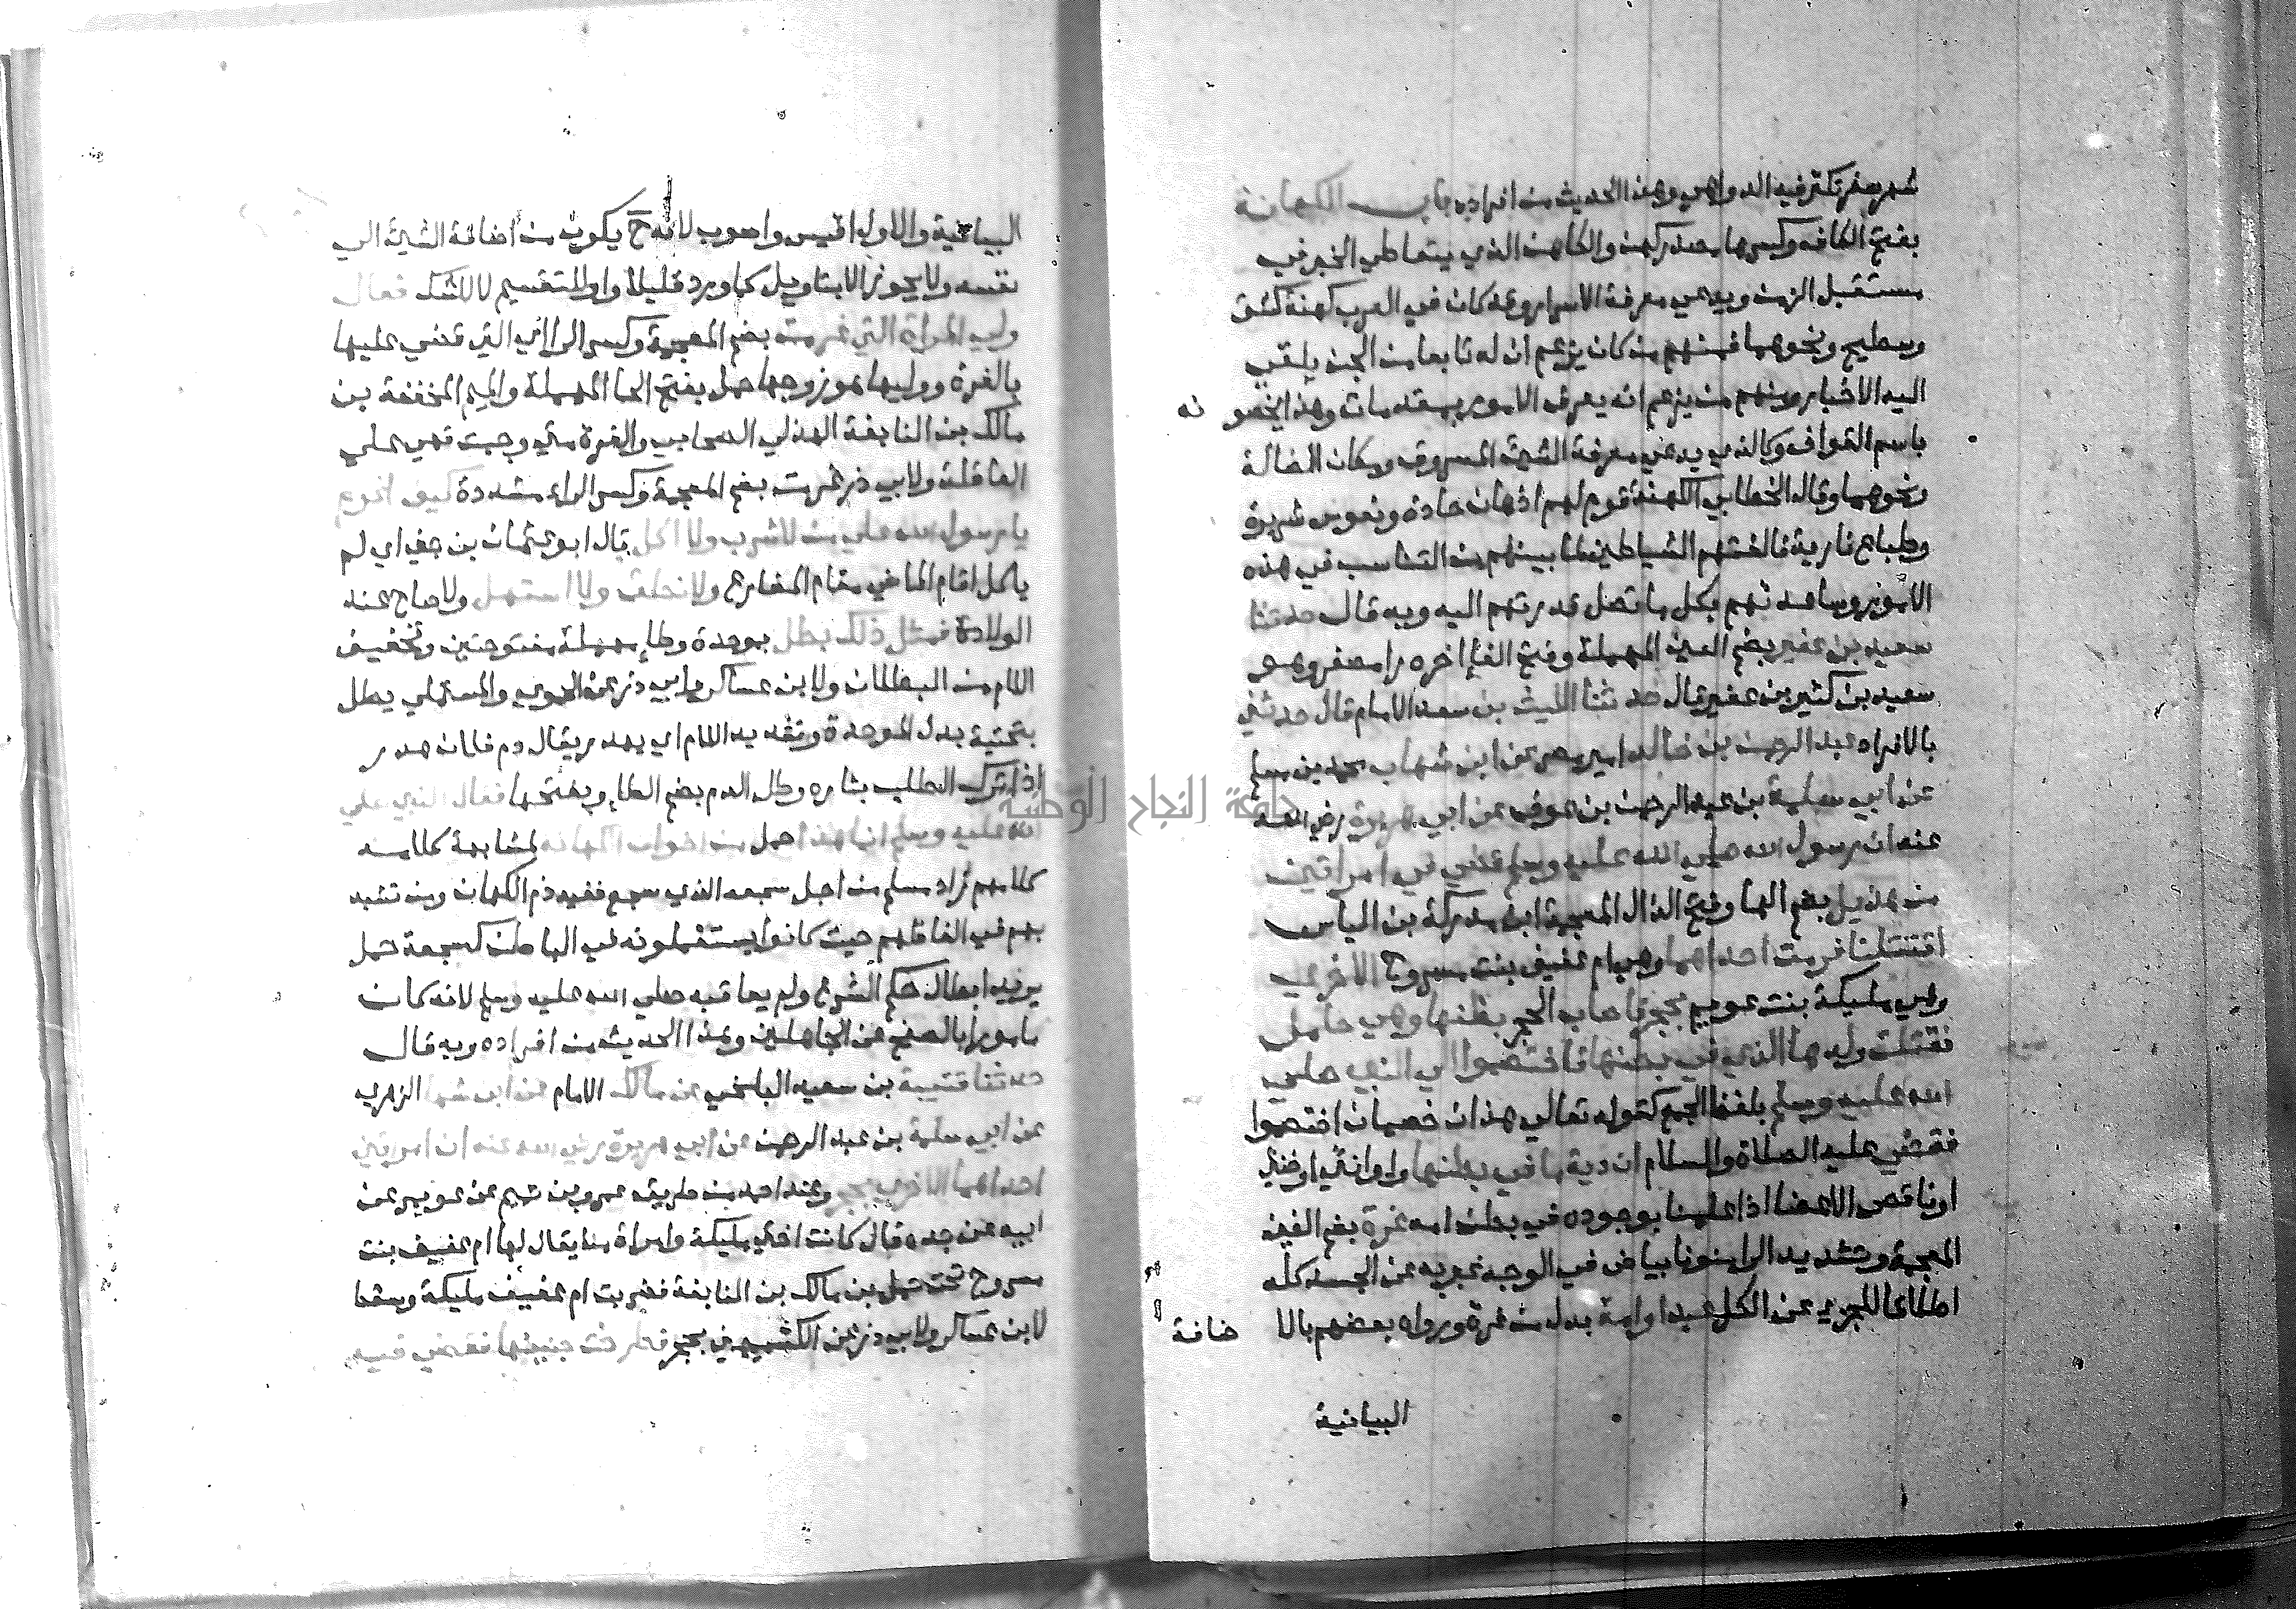 شهر صفر تكثر فيه الدواهي وهذا الحديث من افراده باب الكهانة
بفتح الكاف وكسرها مصدر كهن والكاهن الذي يتعاطي الخبر في
مستقبل الزمن ويدعي معرفة الاسرار وقد كان في العرب كهنة كشق
وسطيح ونحوهما فمنهم من كان يزعم ان له تابعا من الجن يلقي
اليه الاخبار ومنهم من يزعم انه يعرف الامور بمقدمات وهذا يخصونه
باسم العراف وكالذي يدعي معرفة الشي المسروق ومكان الضالة
ونحوهما وقال الخطابي الكهنة قوم لهم اذهان حادة ونفوس شريرة
وطباع نارية فالفتهم الشياطين لما بينهم من التناسب في هذه
الامور وساعدتهم بكل ما تصل قدرتهم اليه وبه قال حدثنا
سعيد بن عفير بضم العين المهملة وفتح الفا اخره را مصغر وهو
سعيد بن كثير بن عفير قال حدثنا الليث بن سعد الامام قال حدثني
بالافراد عبد الرحمن بن خالد امير مصر عن ابن شهاب محمد بن مسلم
عن ابي سلمة بن عبد الرحمن بن عوف عن ابي هريرة رضي الله
عنه ان رسول الله صلي الله عليه وسلم قضي في امراتين
من هذيل بضم الها وفتح الذال المعجمة ابن مدركة بن الياس
اقتتلتا فرمت احداهما وهي ام عفيف بنت مسروح الاخري
وهي مليكة بنت عويم بحجر فاصاب الحجر بطنها وهي حامل
فقتلت ولدها الذي في بطنها فاختصموا الي النبي صلي
الله عليه وسلم بلفظ الجمع كقوله تعالي هذان خصمان اختصموا
فقضي عليه الصلاة والسلام ان دية ما في بطنها ولو انثي او خنثي
او ناقص الاعضا اذا علمنا بوجوده في بطن امه غرة بضم الغين
المعجمة وتشديد الرا منونا بياض في الوجه عبر به عن الجسد كله
اطلاقا للجزء عن الكل عبد او امة بدل من غرة ورواه بعضهم بالا ضافة
البيانية
البيانية والاول اقيس واصوب لانه ح يكون من اضافة الشي الي
نفسه ولا يجوز الا بتاويل كما ورد قليلا واو للتقسيم لا للشك فقال
ولي المراة التي غرمت بضم المعجمة وكسر الرا اي التي قضي عليها
بالغرة ووليها هو زوجها حمل بفتح الحا المهملة والميم المخففة بن
مالك بن النابغة الهذلي الصحابي والغرة متي وجبت فهي علي
العاقلة ولابي ذر غرمت بضم المعجمة وكسر الراء مشددة كيف اغرم
يا رسول الله علي من لا شرب ولا اكل قال ابو عثمان بن جني اي لم
ياكل اقام الماضي مقام المضارع ولا نطق ولا استهل ولا صاح عند
الولادة فمثل ذلك بطل بموحدة وطا مهملة مفتوحتين وتخفيف
اللام من البطلان ولابن عساكر وابي ذر عن الحموي والمستملي يطل
بتحتية بدل الموحدة وتشديد اللام اي يهدر يقال دم فلان هدر
اذا ترك الطلب بثاره وطل الدم بضم الطا وبفتحها فقال النبي صلي
الله عليه وسلم انما هذا حمل من اخوان الكهان لمشابهة كلامه
كلامهم زاد مسلم من اجل سجعه الذي سجع ففيه ذم الكهان ومن تشبه
بهم في الفاظهم حيث كانوا يستعملونه في الباطل كسجعة حمل
يريد ابطال حكم الشرع ولم يعاقبه صلي الله عليه وسلم لانه كان
مامورا بالصفح عن الجاهلين وهذا الحديث من افراده وبه قال
حدثنا قتيبة بن سعيد البلخي عن مالك الامام عن ابن شهاب الزهري
عن ابي سلمة بن عبد الرحمن عن ابي هريرة رضي الله عنه ان امراتين
احداهما الاخري بحجر وعند احمد من طريق عمرو بن تميم عن عويم عن
ابيه عن جده قال كانت اختي مليكة وامراة منا يقال لها ام عفيف بنت
مسروح تحت حمل بن مالك بن النابغة فضربت ام عفيف مليكة وسقط
لابن عساكر ولابي ذر عن الكشميهني بحجر فطرحت جنينها فقضي فيه
جامعة النجاح الوطنية